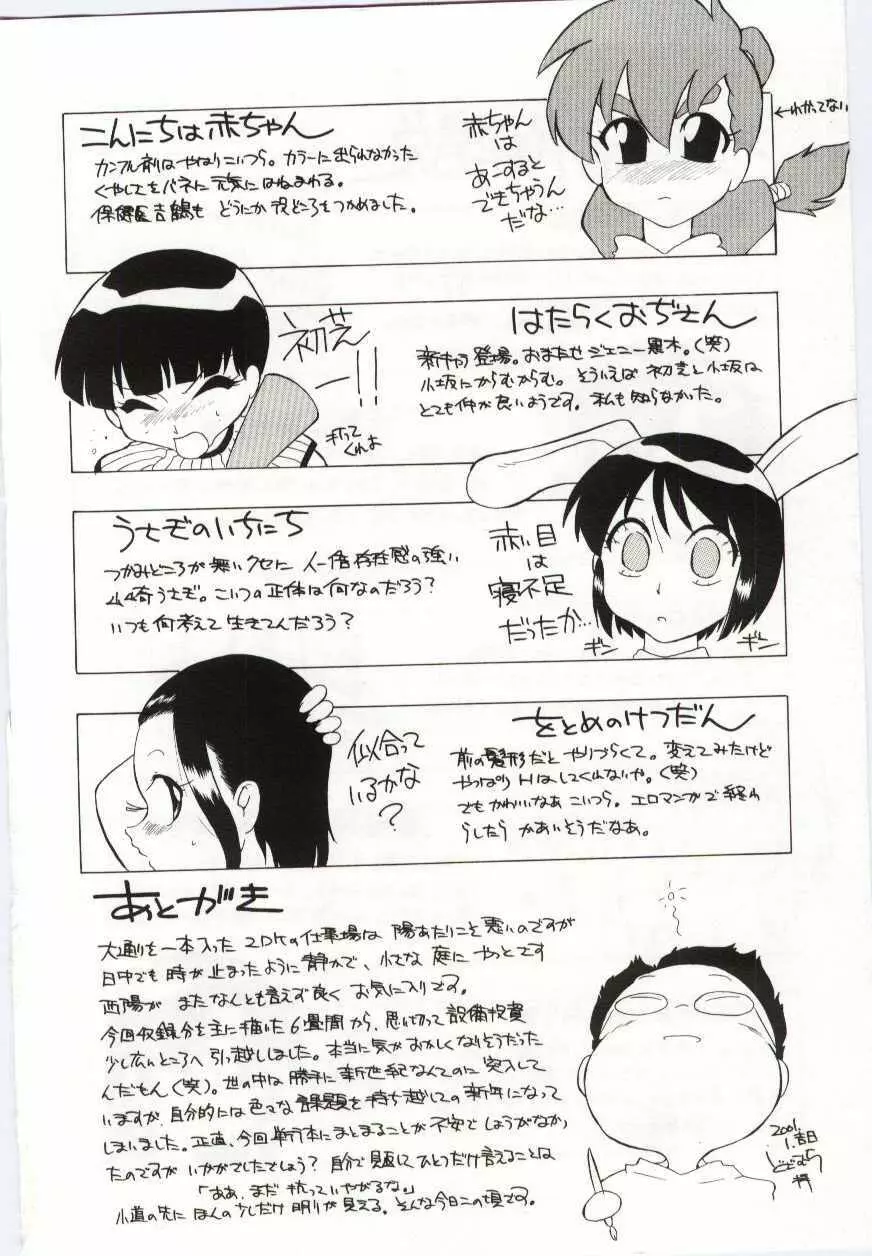 こんにちは赤ちゃん
カンフル剤はやはりこいつら。カラーに出られなかった
くやしさをバネに元気にはねまわる。
保健医吉鶴も どうにか見どころをつかめました。
赤ちゃん
は
あーすると
できちゃうん
だな…
←わかってない
はたらくおぢさん
新キャラ登場。おまたせジェニー黒木。(笑)
小坂にからむからむ。そういえば 初芝と小坂は
とても仲が良いようです。私も知らなかった。
初芝
ー!!
折って
くれよ
うさぞのいちにち
つかみどころが無いクセに 人一倍存在感の強い
山崎うさぞ。こいつの正体は何なのだろう?
いつも何考えて生きてんだろう?
赤い目
は
寝不足
だったか…
ギン
ギン
をとめのけつだん
前の髪形だと やりづらくて。変えてみたけど
やっぱりHはしてくんないや。(笑)
でもかわいいなあ こいつら。エロマンガで終わ
らしたら かあいそうだなあ。
似合って
いるかな
?
あとがき
大通りを一本入った 2DKの仕事場は 陽あたりこそ悪いのですが
日中でも 時が止まったように 静かで、小さな 庭に やっとさす
西陽が またなんとも言えず良く お気に入りです。
今回収録分を主に描いた6畳間から、思い切って設備投資
少し広いところへ 引っ越しました。本当に気がおかしくなりそうだった
んだもん(笑)。世の中は 勝手に 新世紀なんてのに 突入して
いますが、自分的には色々な 課題を持ち越しての 新年になって
しまいました。正直、今回単行本にまとまることが不安でしょうがなか
たのですが いかがでしたでしょう? 自分で見返してひとつだけ言えることは
「ああ、まだ 抗っていやがるな。」
小道の先に ほんの少しだけ 明りが見える。そんな今日この頃です。
2001.
1.吉日